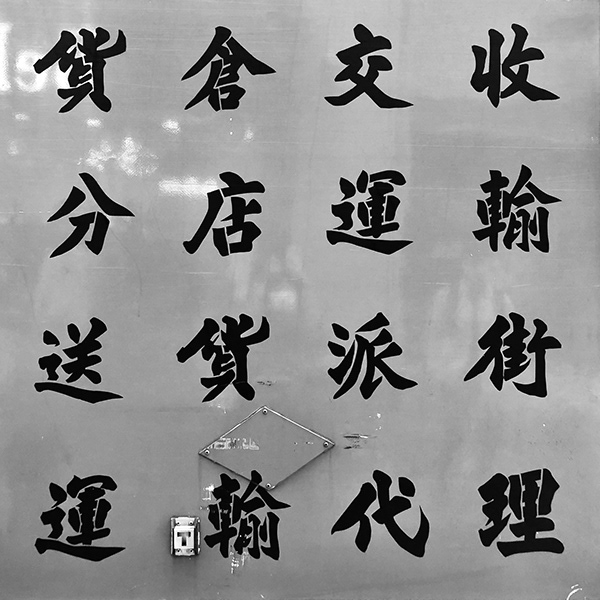 貨倉交收
分店運輸
送貨派街
運輸代理